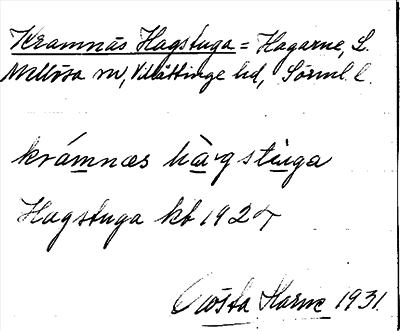 Kramnäs Hagstuga = Hagarne, L.
Mellösa sn, Villåttinge hd, Sörml. l.
krámnæs hà·gstuga
Hagstuga kb 1927
Gösta Karne 1931.